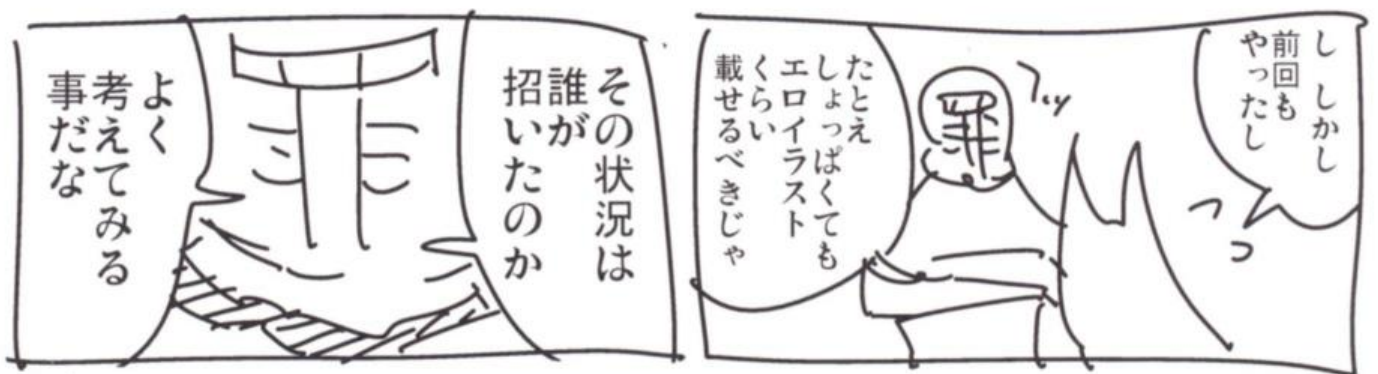 し しかし
前回も
やったし
フッ
罪
たとえ
しょっぱくても
エロイラスト
くらい
載せるべきじゃ
その状況は
誰が
招いたのか
よく
考えてみる
事だな